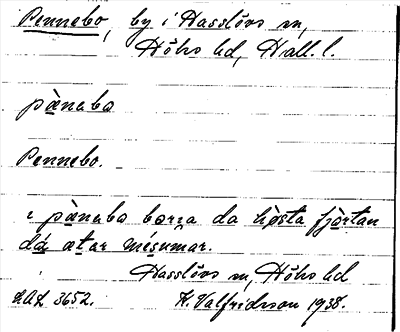 Pennebo, by i Hasslövs sn,
Höks hd, Hall. l.
pànabo
Pennebo.
i pànabo bœrȷa da hösta fjòrtan
dá ætar mésumar.
Hasslövs sn, Höks hd
L.A.L. 3652. K. Valfridsson 1938.